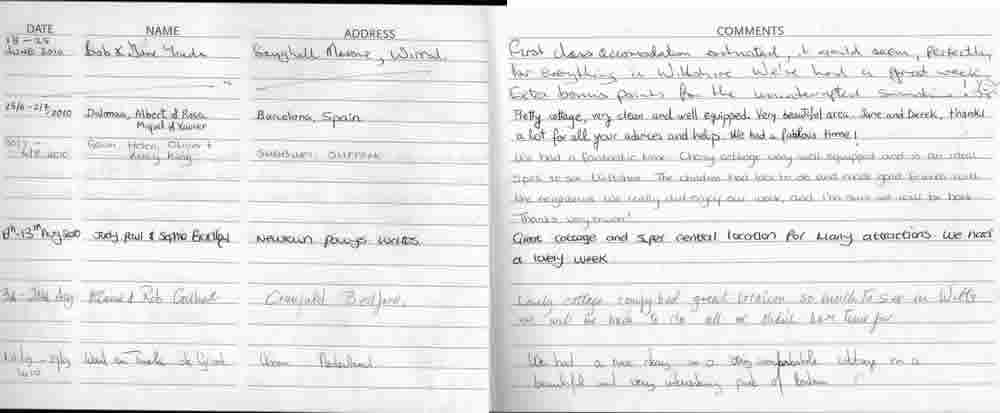 DATE NAME ADDRESS COMMENTS
18 - 25
JUNE 2010 Bob & Wirral.
First class accomodation, it would seem, perfectly
for everything in Wiltshire We've had a great week.
Extra bonus points for the uninterrupted
25/6 - 2/7
2010 Dalmau, Albert & Rosa
Miquel & Xavier Barcelona, Spain
Pretty cottage, very clean and well equipped. Very beautiful area. Jane and Derek, thanks
a lot for all your advices and help. We had a fabulous time!
2010 Gavin, Helen, Oliver &
King SUDBURY, SUFFOLK
We had a fantastic time. Cottage very well equipped and is an ideal
spot to see Wiltshire. The children had lots to do and made good friends with
the neighbours. We really did enjoy our week, and I'm sure we will be back.
Thanks very much!
13th Aug 2010 Judy, Paul & Sophie Newtown Powys Wales
Great cottage and super central location for many attractions. We had
a lovely week
Aug & Rob Cranfield Bedford.
Lovely cottage comfy bed great location so much to see in Wilts
we will be back to do all we didn't have time for
2010 Nederland
We had a nice stay in a very comfortable cottage in a
beautiful and very interesting part of